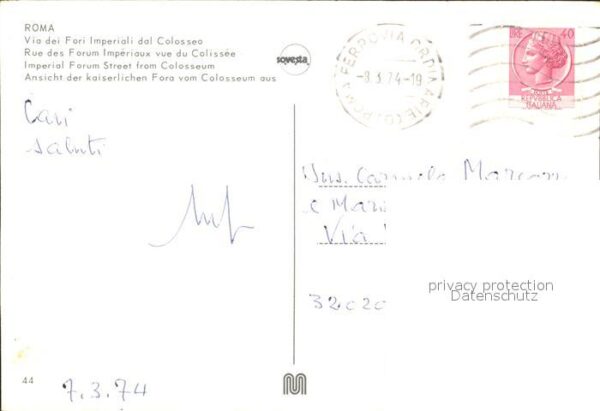 ROMA
Via dei Fori Imperiali dal Colosseo
Rue des Forum Impériaux vue du Colissée
Imperial Forum Street from Colosseum
Ansicht der kaiserlichen Fora vom Colosseum aus
sovesta
ROMA FERROVIA ORDINARIE
-8.3.74-19
LIRE 40
REPVBBLICA
ITALIANA
Cari
saluti
Carmelo
e
Via
privacy protection
Datenschutz
32020
44
7.3.74